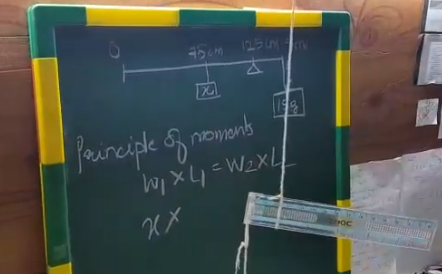 0 75cm 125cm
x 15g
Principle of moments
W₁ × L₁ = W₂ × L
x ×